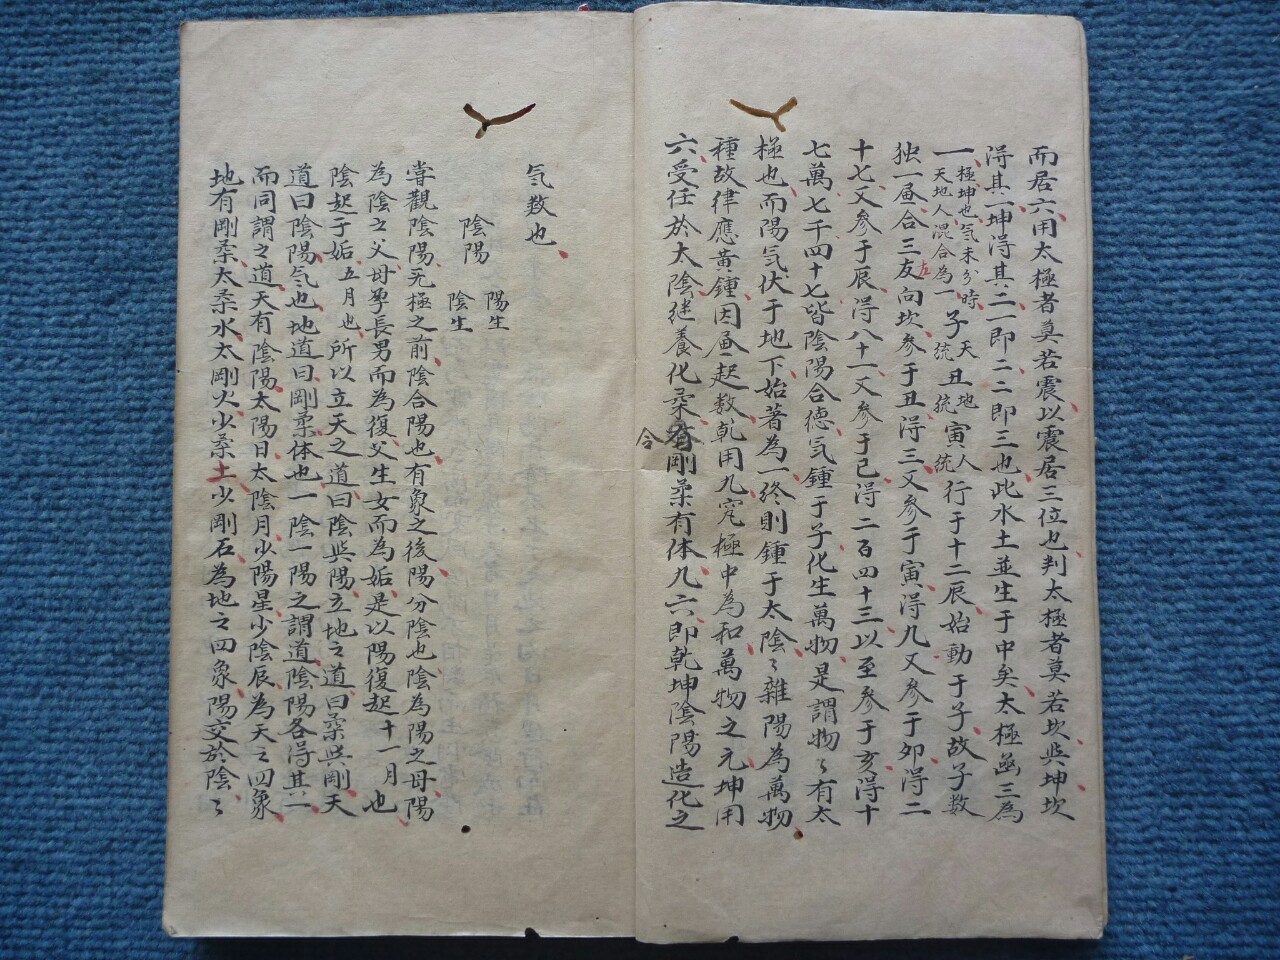 而居六用太極者莫若震以震居三位也判太極者莫若坎與坤坎
淂其一坤淂其二一即二二即三也此水土並生于中矣太極凾三為
一極坤也气未分時天地人混合為一子天統丑地統寅人統行于十二辰始動于子故子数
独一畨合三友向坎参于丑淂三又参于寅淂九又参于卯淂二
左
十七又参于辰淂八十一又参于巳淂二百四十三以至参于亥淂十
七萬七千四十七皆陰陽合德气鍾于子化生萬物是謂物〻有太
極也而陽气伏于地下始著為一終則鍾于太陰〻雜陽為萬物
種故律應黃鍾因畨一起数乾用九究極中為和萬物之元坤用
六受任於太陰継養化柔有剛柔有体九六即乾坤陰陽造化之
合
气数也
陰陽 陽生陰生
嘗觀陰陽无極之前陰合陽也有象之後陽分陰也陰為陽之母陽
為陰之父母孕長男而為復父生女而為姤是以陽復起十一月也
陰起于姤五月也所以立天之道曰陰與陽立地之道曰柔與剛天
道曰陰陽气也地道曰剛柔体也一陰一陽之謂道陰陽各淂其一
而同謂之道天有陰陽太陽日太陰月少陽星少陰辰為天之四象
地有剛柔太柔水太剛火少柔土少剛石為地之四象陽交於陰〻